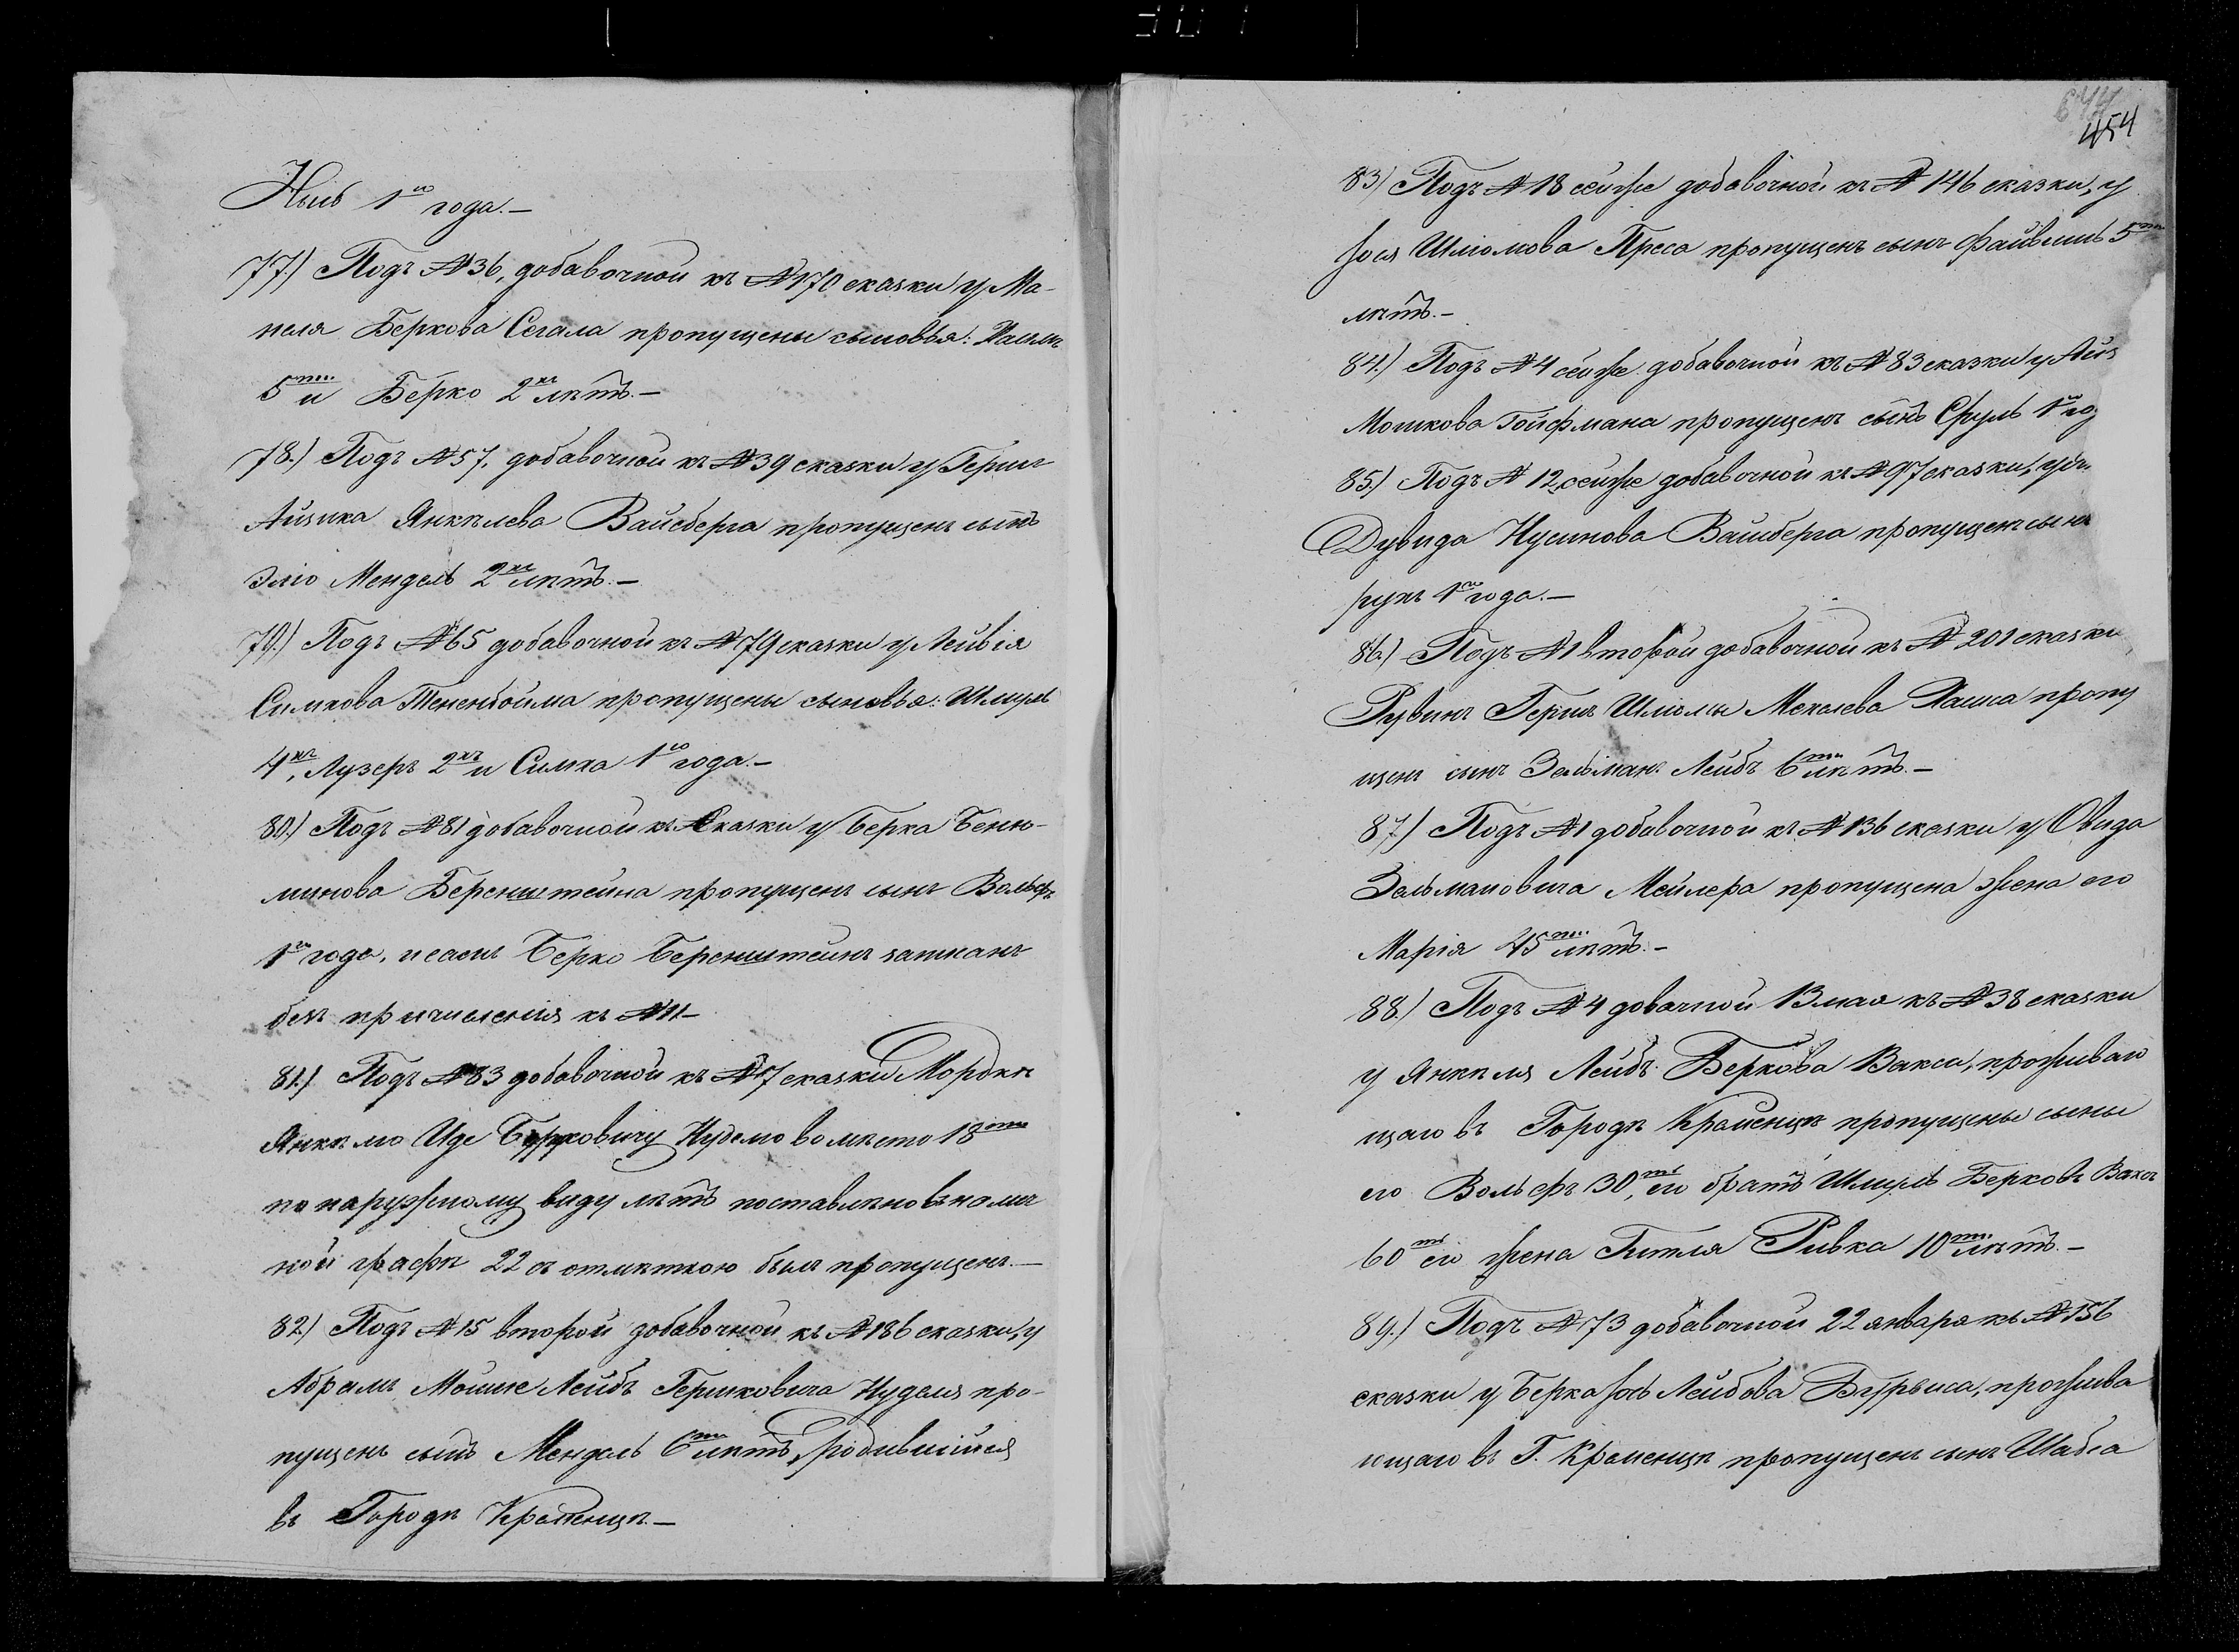 1го года.—
77.) Подъ №36, добавочной къ №170 сказки у Ма-
неля Беркова Сегала пропущены сыновья: Хаимъ
5ти и Берко 2хъ лѣтъ.—
78.) Подъ №57, добавочной къ №39 сказки у Герша
Айзика Янкелева Вайсберга пропущенъ сынъ
Эліо Мендель 2хъ лѣтъ.—
79.) Подъ №65 добавочной къ №79 сказки у Лейвія
Симхова Тененбойма пропущены сыновья: Шмуль
4хъ, Лузеръ 2хъ и Симха 1го года.—
80.) Подъ №81 добавочной къ сказки у Берка Беню-
минова Беренштейна пропущенъ сынъ Вольфъ
1го года, и самъ Берко Беренштейнъ записанъ
безъ причисленія къ №11—
81.) Подъ №83 добавочной къ №17 сказки Мордкѣ
Янкелю Иде Берковичу Нуделю вомѣсто 18ти
по наружному виду лѣтъ поставлено въ налич
ной графѣ 22 съ отмѣткою былъ пропущенъ.—
82.) Подъ №15 второй добавочной къ №186 сказки, у
Абрамъ Мошие Лейбъ Гершковича Нуделя про-
пущенъ сынъ Мендель 6ти лѣтъ, родившійся
въ Городѣ Кременцѣ.—
644
454
83) Подъ №18 сей же добавочной къ №146 сказки, у
Іося Шліомова Преса пропущенъ сынъ Файвишь 5ти
лѣтъ.—
84.) Подъ №4 сей же добавочной къ №83 сказки у Айз
Мошкова Гойфмана пропущенъ сынъ Сруль 1го го
85.) Подъ №12 сей же добавочной къ №97 сказки, у
Дувида Нусинова Вайсберга пропущенъ сынъ
рухъ 1го года.—
86.) Подъ №1 второй добавочной къ №201 сказки
Рувинъ Гершъ Шліомы Мехелева пропу
щенъ сынъ Зельманъ Лейбъ 6ти лѣтъ.—
87.) Подъ №1 добавочной къ №136 сказки у Овида
Зельмановича Мейлера пропущена жена его
Марія 45ти лѣтъ.—
88.) Подъ №4 довачной 13 мая къ №38 сказки
у Янкеля Лейбъ Беркова Вакса, проживаю
щаго въ Городѣ Кременцѣ пропущены сыны
его Вольфъ 30ть, его братъ Шмуль Берковъ Ваксъ
60ть его жена Гитля Ривка 10ти лѣтъ.—
89.) Подъ №73 добавочной 22 января къ №156
сказки у Берка Іось Лейбова прожива
ющаго въ Г. Кременцѣ пропущенъ сынъ Шабса